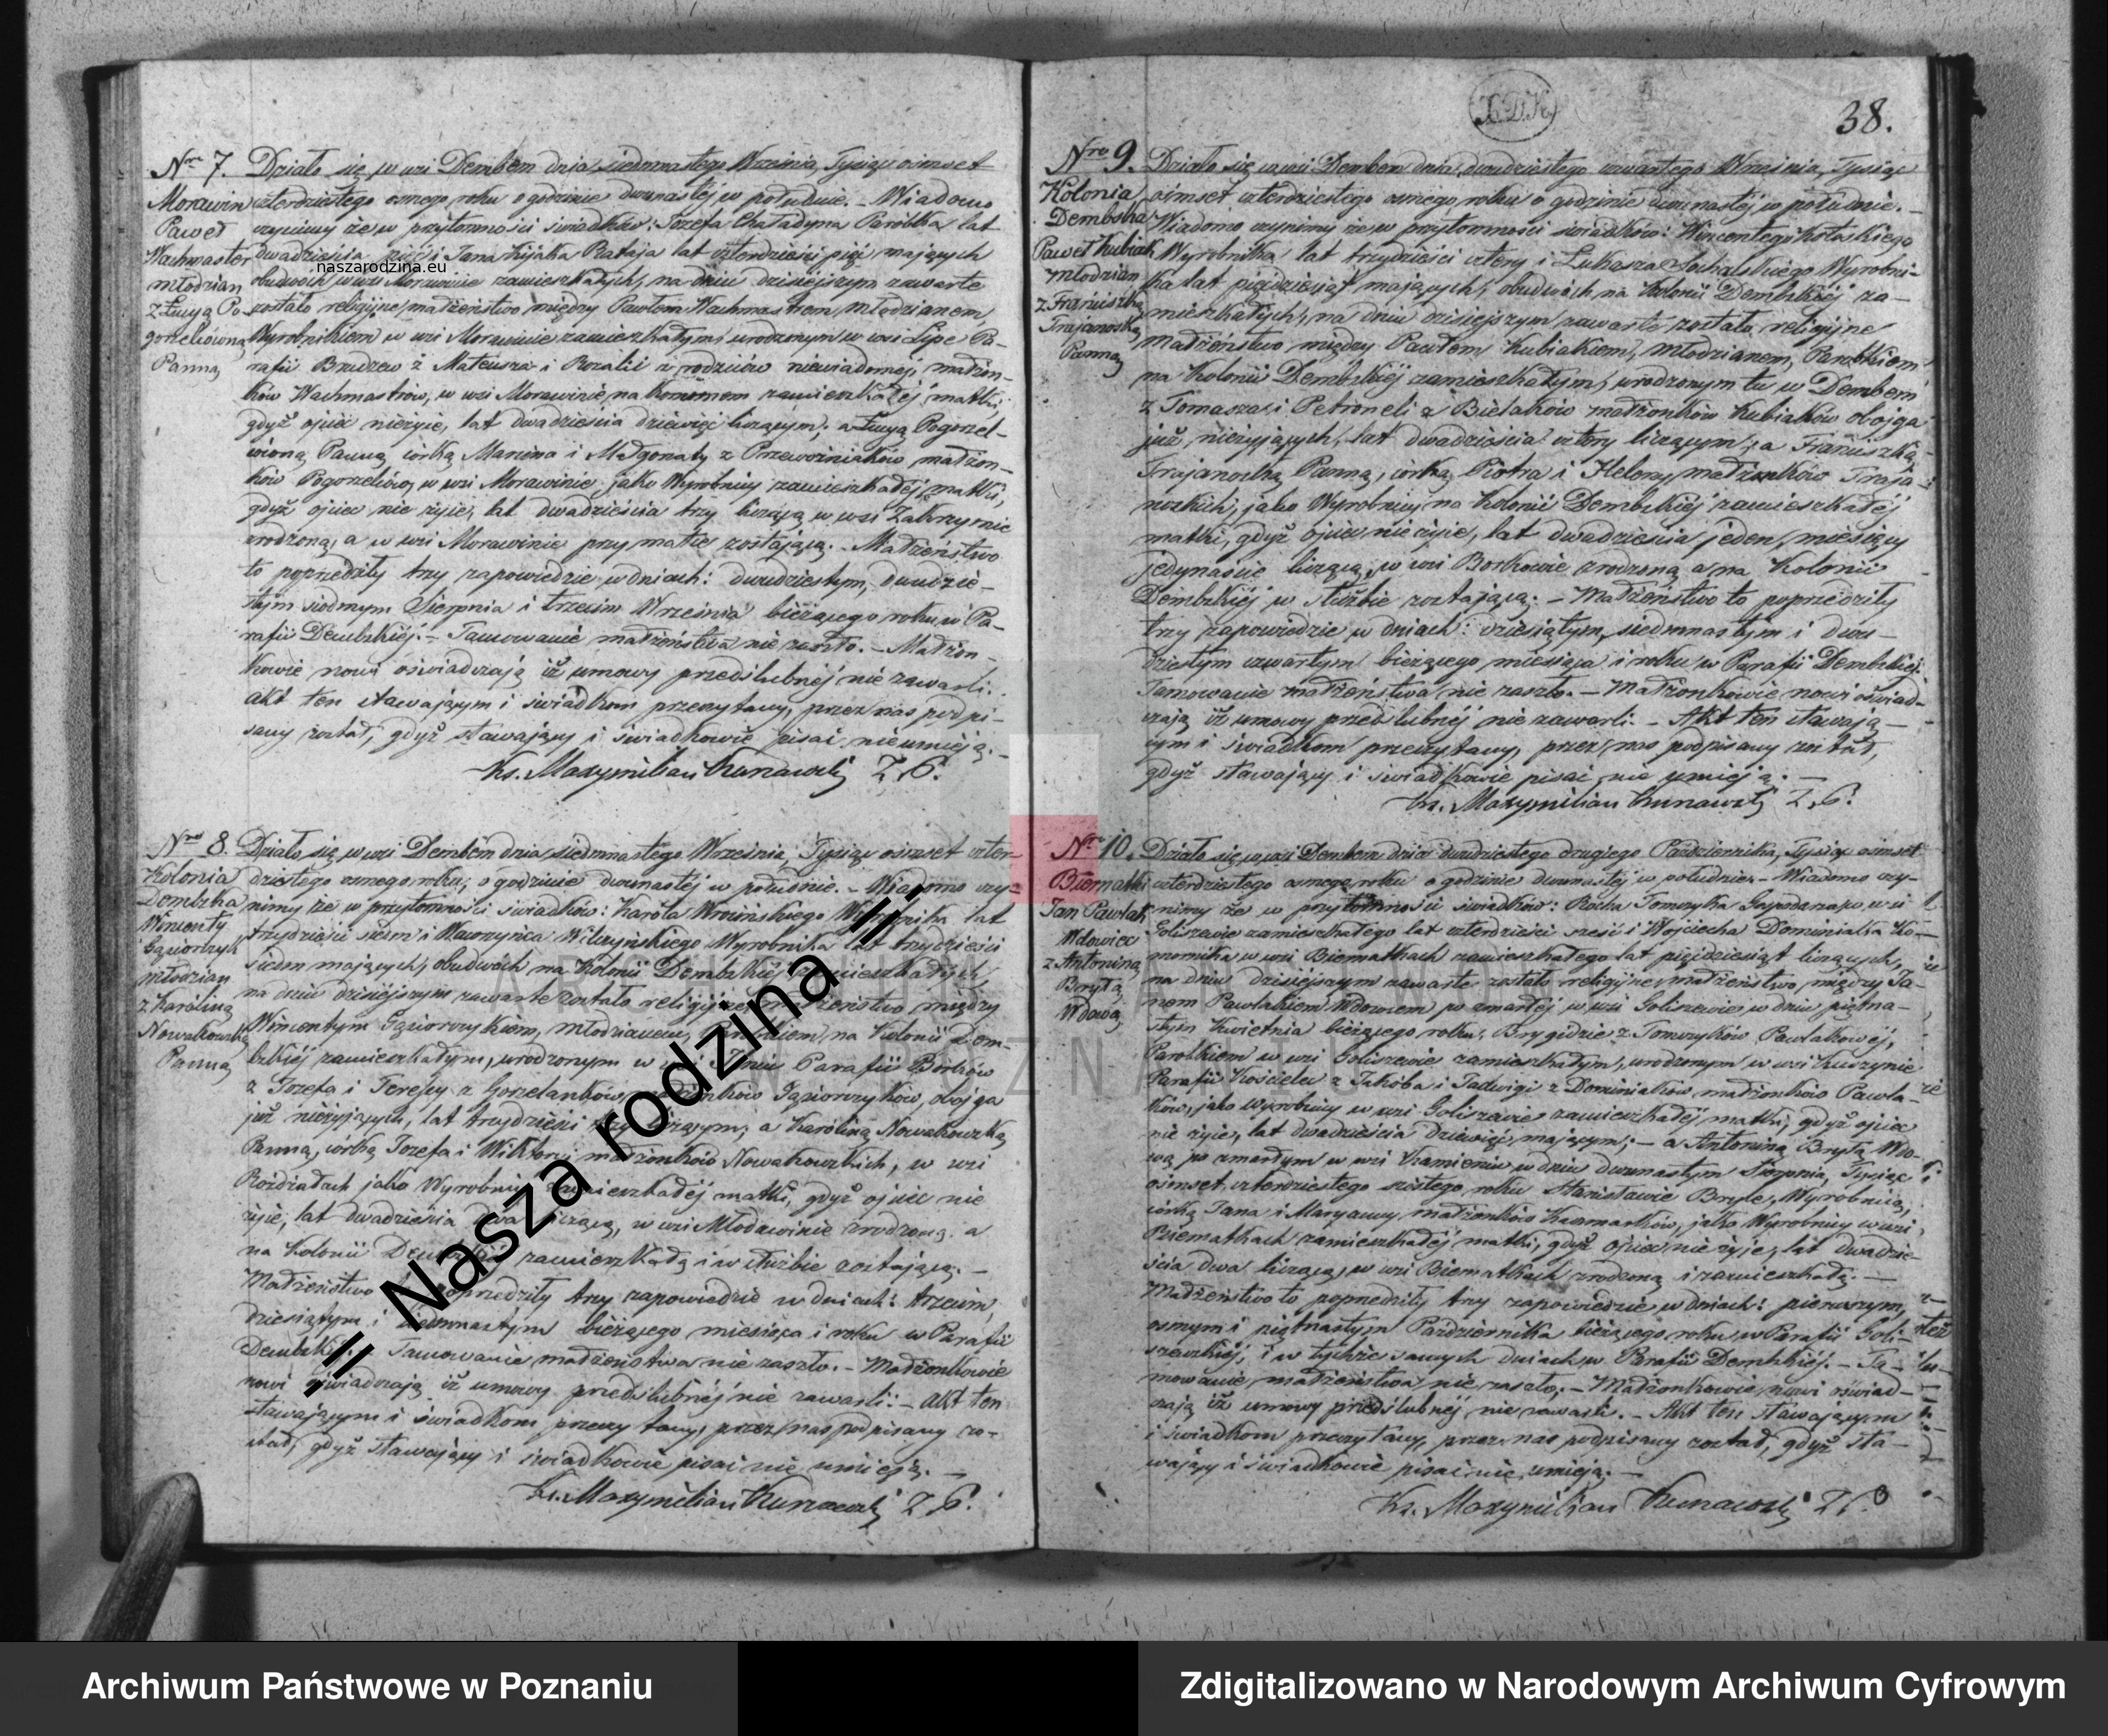 Nro 7.
Morawin
Paweł
Wachmaster
młodzian
z Łucyą Po-
gorzelówną
Panną
Działo się w wsi Dembem dnia siedmnastego Września, Tysiąc ośmset
czterdziestego ósmego roku o godzinie dwunastéj w południe. - Wiadomo
czynimy że w przytomności świadków: Józefa Chaładyna Parobka lat
dwadzieścia pięć i Jana Kijaka Rataja lat czterdzieści pięć mających
obudwóch w wsi Morawinie zamieszkałych, na dniu dzisiejszym zawarte
zostało religijne małżeństwo między Pawłem Wachmastrem, Młodzianem,
Wyrobnikiem w wsi Morawinie zamieszkałym, urodzonym w wsi Lipe Pa-
rafii Brudzew z Mateusza i Rozalii z rodziców niewiadomej, małżon-
ków Wachmastrów, w wsi Morawinie na komornem zamieszkałéj matki,
gdyż ojciec nieżyie, lat dwadzieścia dziewięć liczącym; a Łucyą Pogorzel-
wioną Panną, córką Marcina i Małgorzaty z Przewoźniaków małżon-
ków Pogorzelów, w wsi Morawinie jako Wyrobnicy zamieszkałéj matki,
gdyż ojciec nie żyie, lat dwadzieścia trzy liczącą, w wsi Zakrzynie
zrodzoną, a w wsi Morawinie przy matce zostającą. - Małżeństwo
to poprzedziły trzy zapowiedzie w dniach: dwudziestym, dwudzie-
stym siódmym Sierpnia i trzecim Września bieżącego roku w Pa-
rafii Dembskiéj. - Tamowanie małżeństwa nie zaszło. - Małżon-
kowie nowi oświadczają iż umowy przedślubnéj nie zawarli.
akt ten stawającym i świadkom przeczytany, przez nas podpi-
sany został, gdyż stawający i świadkowie pisać nieumieją. -
Ks. Maxymilian Kunawski
Nro 8.
Kolonia
Dembska
Wincenty
Gąsiorczyk
młodzian
z Karoliną
Nowakowską
Panną
Działo się w wsi Dembem dnia siedmnastego Września, Tysiąc ośmset czter-
dziestego ósmego roku, o godzinie dwunastéj w południe. - Wiadomo czy-
nimy że w przytomności świadków: Karóla Wroińskiego Wyrobnika lat
trzydzieści siedm i Wawrzyńca Wilczyńskiego Wyrobnika lat trzydzieści
siedm mających, obudwóch na Kolonii Dembskiéj zamieszkałych,
na dniu dzisiejszym zawarte zostało religijne małżeństwo między
Wincentym Gąsiorczykiem, młodzianem, Parobkiem, na Kolonii Dem-
bskiéj zamieszkałym, urodzonym w wsi Parafii Borków
z Józefa i Teresy z Gorzelanków małżonków Gąsiorczyków, obojga
już nieżyjących, lat trzydzieści trzy liczącym; a Karoliną Nowakowską
Panną, córką Józefa i Wiktoryi małżonków Nowakowskich, w wsi
Roźdźałach jako Wyrobnicy zamieszkałéj matki, gdyż ojciec nie
żyie, lat dwadzieścia dwa liczącą, w wsi Młodawinie zrodzoną. a
na Kolonii Dembskiéj zamieszkałą i w służbie zostającą. -
Małżeństwo to poprzedziły trzy zapowiedzie w dniach: trzecim,
dziesiątym i siedmnastym bieżącego miesiąca i roku w Parafii
Dembskiéj. Tamowanie małżeństwa nie zaszło. - Małżonkowie
nowi oświadczają iż umowy przedślubnéj nie zawarli. - Akt ten
stawającym i świadkom przeczytany, przez nas podpisany zo-
stał, gdyż stawający i świadkowie pisać nie umieją. -
Ks. Maxymilian Kunawski
38.
Nro 9.
Kolonia
Dembska
Paweł Kubiak
młodzian
z Franciszką
Trajanoską
Panną
Działo się w wsi Dembem dnia dwudziestego czwartego Września, Tysiąc
ośmset czterdziestego ósmego roku o godzinie dwunastéj w południe. -
Wiadomo czynimy że w przytomności świadków: Wincentego Kotaskiego
Wyrobnika lat trzydzieści cztery i Łukasza Sochalskiego Wyrobni-
ka lat pięćdziesiąt mających, obudwóch na Kolonii Dembskiéj za-
mieszkałych, na dniu dzisiejszym zawarte zostało religijne
małżeństwo między Pawłem Kubiakiem, Młodzianem, Parobkiem
na Kolonii Dembskiéj zamieszkałym, urodzonym tu w Dembem
z Tomasza i Petroneli z Bielaków małżonków Kubiaków obojga
już nieżyjących, lat dwadzieścia cztery liczącym; a Franciszką
Trajanoską Panną, córką Piotra i Heleny małżonków Traja-
noskich, jako Wyrobnicy na Kolonii Dembskiéj zamieszkałéj
matki, gdyż ojciec nie żyie, lat dwadzieścia jeden, miesięcy
jedynaście liczącą, w wsi Borkowie zrodzoną a na Kolonii
Dembskiéj w służbie zostającą. - Małżeństwo to poprzedziły
trzy zapowiedzie w dniach: dziesiątym, siedmnastym i dwu-
dziestym czwartym bieżącego miesiąca i roku w Parafii Dembskiéj.
Tamowanie małżeństwa nie zaszło. - Małżonkowie nowi oświad-
czają iż umowy przedślubnéj nie zawarli. - Akt ten stawają-
cym i świadkom przeczytany, przez nas podpisany został,
gdyż stawający i świadkowie pisać nie umieją. -
Ks. Maxymilian Kunawski
Nro 10.
Biernatki
Jan Pawlak
Wdowiec
z Antoniną
Bryłą
Wdową
Działo się w wsi Dembem dnia dwudziestego drugiego Października, Tysiąc ośmset
czterdziestego ósmego roku o godzinie dwunastéj w południe. - Wiadomo czy-
nimy że w przytomności świadków: Rocha Tomczyka Gospodarza w wsi
Goliszewie zamieszkałego lat czterdzieści sześć i Wojciecha Dominiaka Ko-
mornika w wsi Biernatkach zamieszkałego lat pięćdziesiąt liczących,
na dniu dzisiejszym zawarte zostało religijne małżeństwo między Ja-
nem Pawlakiem Wdowcem po zmarłéj w wsi Goliszewie w dniu piętna-
stym Kwietnia bieżącego roku, Brygidzie z Tomczyków Pawlakowéj,
Parobkiem w wsi Goliszewie zamieszkałym, urodzonym w wsi Kuczynie
Parafii Kościelec z Jakóba i Jadwigi z Dominiaków małżonków Pawla-
ków, jako Wyrobnicy w wsi Goliszewie zamieszkałéj matki, gdyż ojciec
nie żyie, lat dwadzieścia dziewięć mającym; - a Antoniną Bryłą Wdo-
wą po zmarłym w wsi Kamieniu w dniu dwunastym Sierpnia, Tysiąc
ośmset czterdziestego szóstego roku Stanisławie Bryle, Wyrobnicą,
córką Jana i Maryanny małżonków Kaczmarków, jako Wyrobnicy w wsi
Biernatkach zamieszkałéj matki, gdyż ojciec nie żyje, lat dwadzie-
ścia dwa liczącą, w wsi Biernatkach zrodzoną i zamieszkałą. -
Małżeństwo to poprzedziły trzy zapowiedzie w dniach: pierwszym,
ósmym i piętnastym Października bieżącego roku w Parafii Goli-
szewskiéj, i w tychże samych dniach w Parafii Dembskiéj. - Ta-
mowanie małżeństwa nie zaszło. - Małżonkowie nowi oświad-
czają iż umowy przedślubnej nie zawarli. - Akt ten stawającym
i świadkom przeczytany, przez nas podpisany został, gdyż sta-
wający i świadkowie pisać nie umieją. -
Ks. Maxymilian Kunawski
naszarodzina.eu
.:= Nasza rodzina =:.
ARCHIWUM PAŃSTWOWE
W POZNANIU
Archiwum Państwowe w Poznaniu
Zdigitalizowano w Narodowym Archiwum Cyfrowym